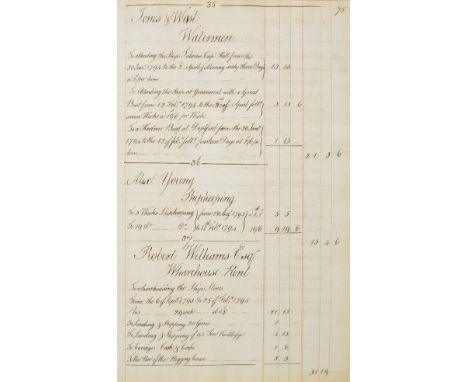 35
75
Jones & West
Watermen
To attending the Ship Take Cap.t Hall from the
30 Jan.y 1794 to the 2 April following sixty three Days
a 5 per diem 15 15
To Attending the Ship at Gravesend with a Guard
Boat from 12 Feb.y 1794 to the April foll.g
seven Weeks a 19/6 per Week 3 13 6
To a Harbour Boat at Deptford from the 30 Jan.y
1794 to the 12 of Feb.y foll.g fourteen Days at 2/6 per
diem 1 15
21 3 6
36
Alex.r Young
Shipkeeping
To 5 Weeks Shipkeeping from 28 Aug.t 1793 5 5
To 19 D.o D.o to 11 Feb.y 1794 10/6 9 19 6
15 4 6
37
Robert Williams Esq.r
Wharehouse Rent
To warehousing the Ships Stores
from the 6 of Sept.r 1793 to 25 of Feb.y 1794
21 15
To Landing & Shipping 20 Guns 1 -
To Landing & Shipping of 95 Tons Kentledge 4 15
To Carriages Cask & Coops 1 6
To the Use of the Rigging house 3 3
31 19 -